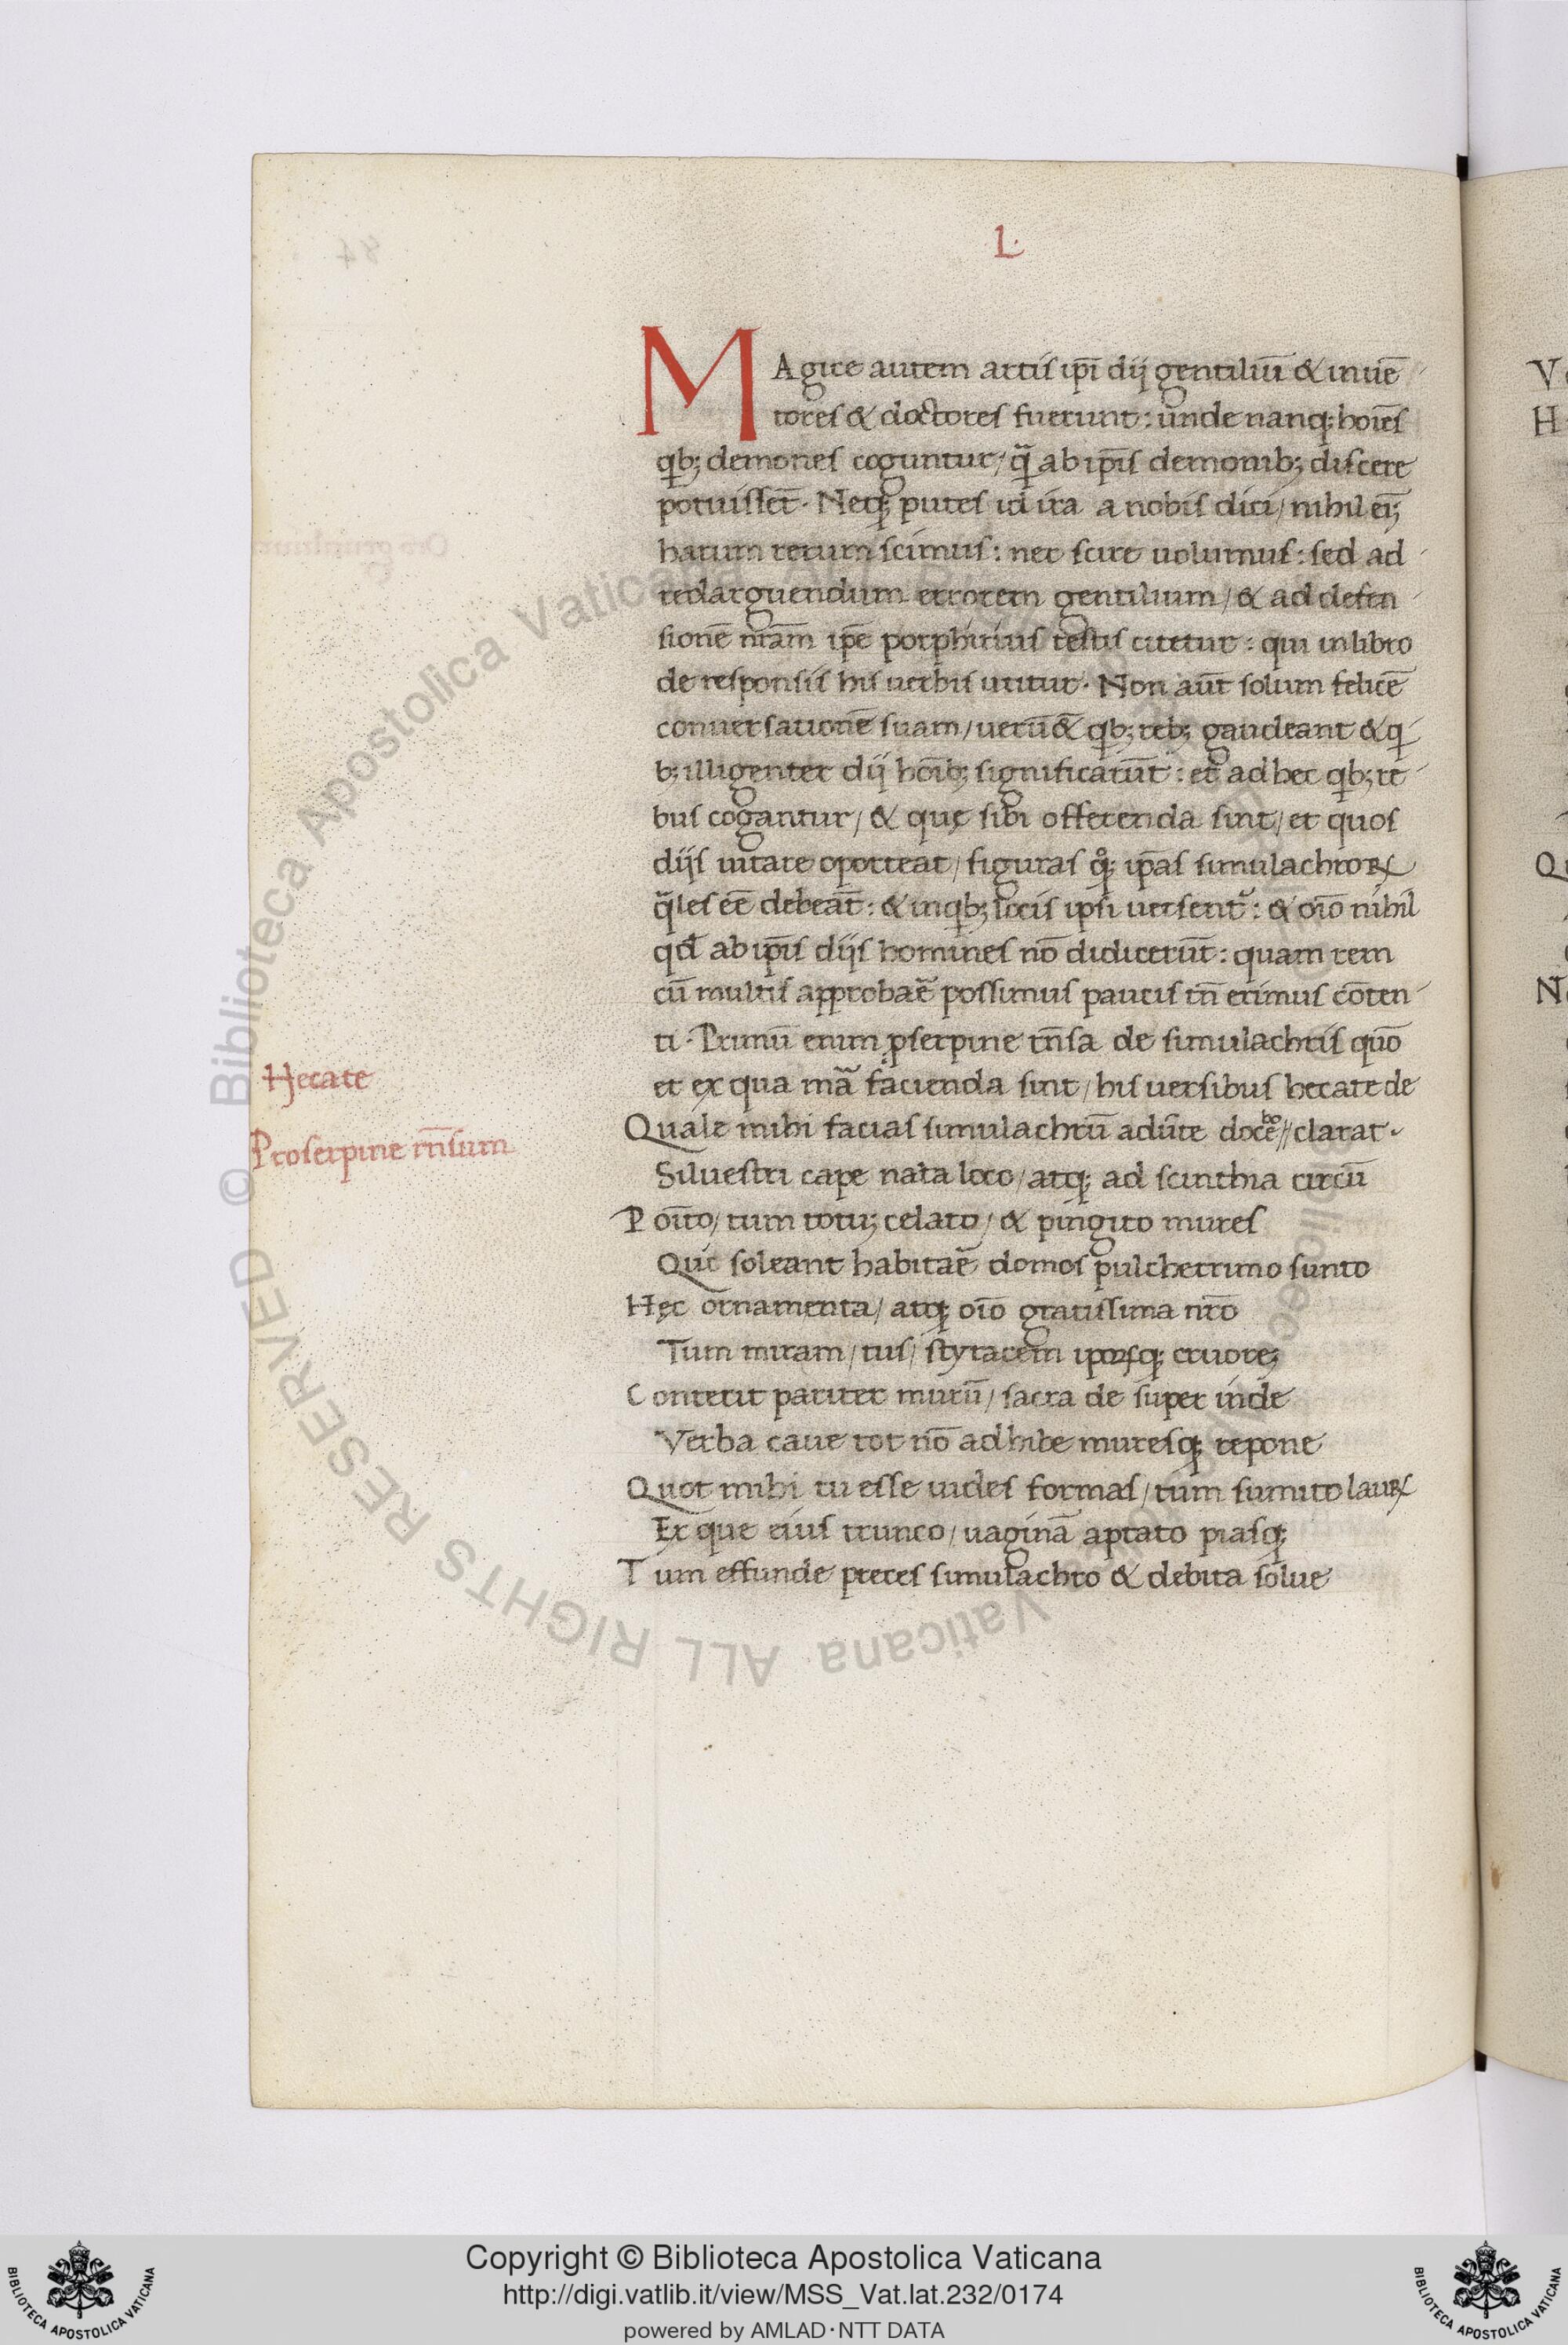 L·
MAgice autem artis ip̄i dij gentiliū & inuē
tores & doctores fuerunt: unde nanq; hoīes
qb; demones coguntur/ q̄ ab ip̄is demonib; discere
potuissēt· Neq; putes id ita a nobis dici/ nihil eī;
harum rerum scimus: nec scire uolumus: sed ad
redarguendum errorem gentilium/ & ad defen
sionē nr̄am ip̄e porphirius testis citetur: qui in libro
de responsis his uerbis utitur· Non aūt solum felicē
conuersationē suam/ uerū & qb; reb; gaudeant & q
b; illigenter dij hoīb; significarūt: et ad hec qb; re
bus cogantur/ & quę sibi offerenda sint/ et quos
dijs uitare oporteat/ figuras q̊; ip̄as simulachroꝝ
q̄les eē debeāt: & in qb; locis ipsi uersent᷑: & oīo nihil
qd̄ ab ip̄is dijs homines nō didicerūt: quam rem
cū multis approbar̄e possimus paucis tn̄ erimus cōten
ti· Primū enim pserpine rn̄sa de simulachris quō
et ex qua mā facienda sint/ his uersibus hecate de
Hecate
Quale mihi facias simulachrū adūte docebo//clarat·
Proserpine rn̄sum
Siluestri cape nata loco/ atq; ad scinthia circū
Poīto/ tum totu; celato/ & pingito mures
Qui soleant habitar̄e domos pulcherrimo sunto
Hęc ornamenta/ atq; oīo gratissima nr̄o
Tum miram/ tus/ styracem ipoꝝq; cruore;
Conterit pariter murū/ sacra de super inde
Verba caue tot nō adhibe muresq; repone
Quot mihi tu esse uides formas/ tum sumito lauꝝ
Ex que eius trunco/ uaginā aptato piasq;
Tum effunde preces simulachro & debita solue
Copyright © Biblioteca Apostolica Vaticana
http://digi.vatlib.it/view/MSS_Vat.lat.232/0174
powered by AMLAD·NTT DATA
BIBLIOTECA APOSTOLICA VATICANA
BIBLIOTECA APOSTOLICA VATICANA
© Biblioteca Apostolica Vaticana ALL RIGHTS RESERVED